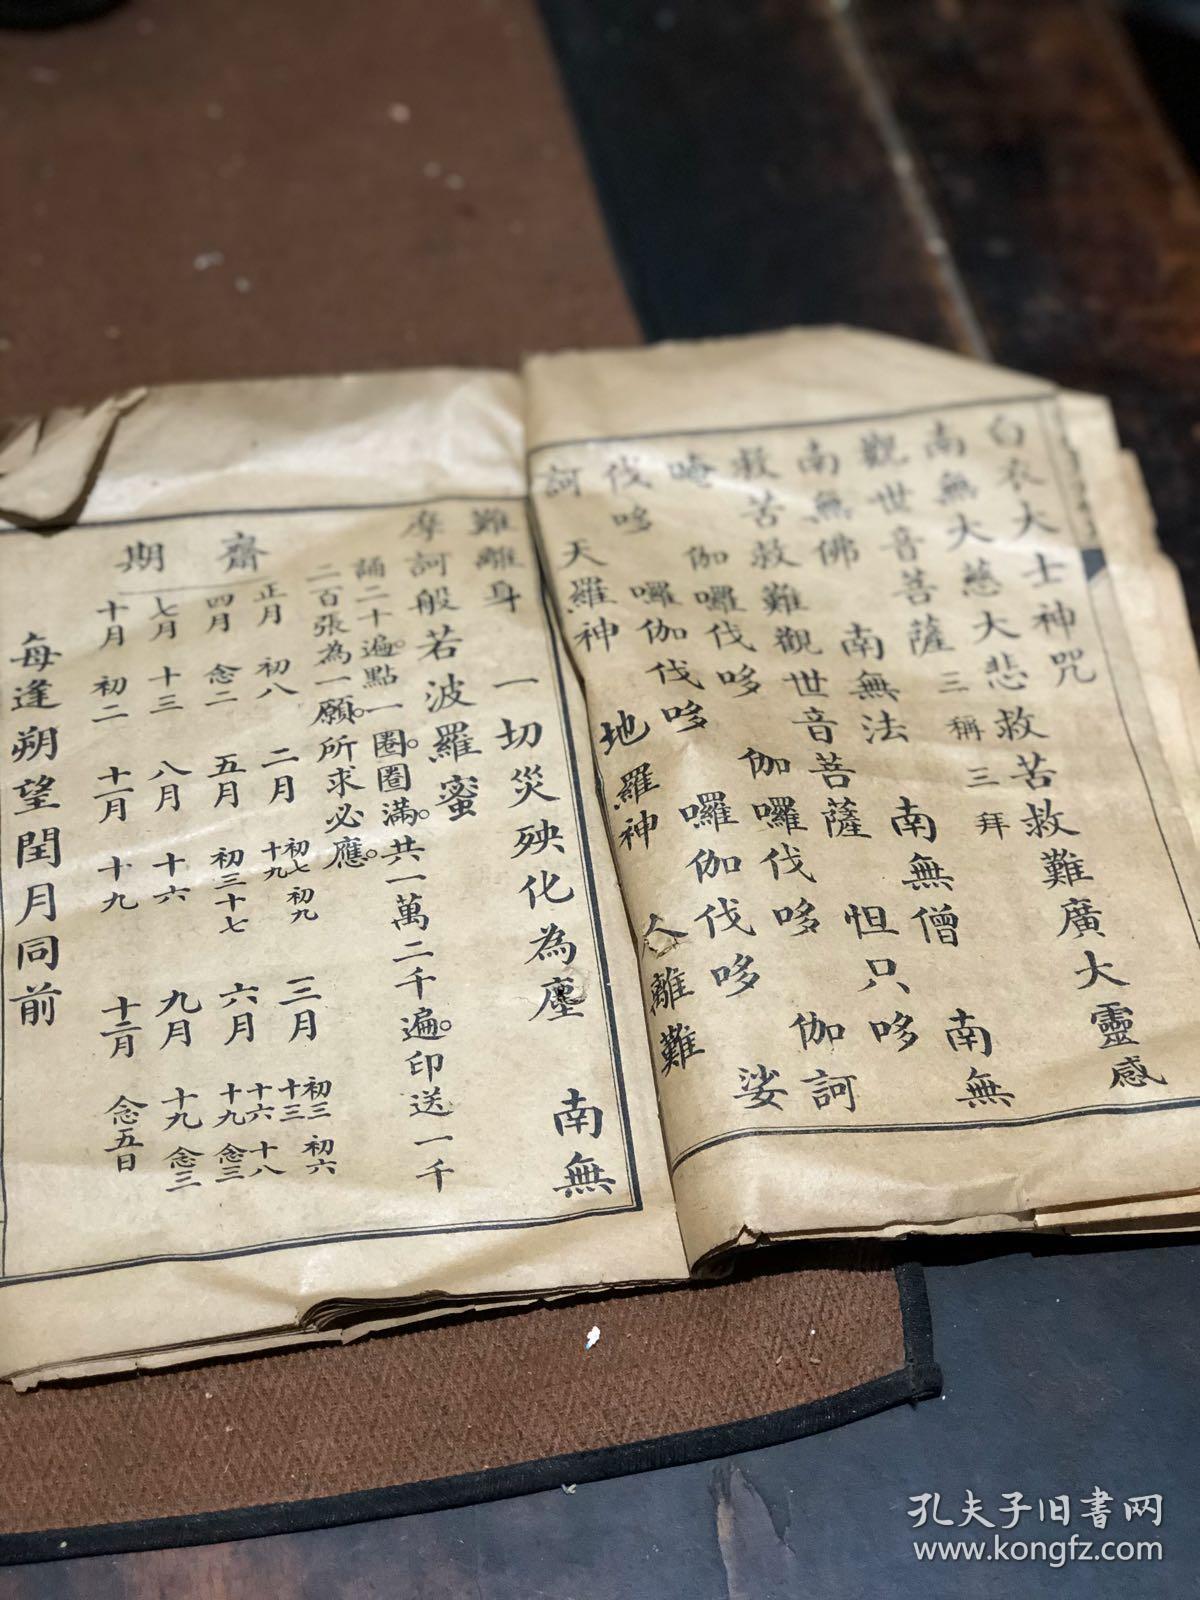 白衣大士神咒
南無大慈大悲救苦救難廣大靈感
觀世音菩薩 三稱三拜
南無佛 南無法 南無僧 南無
救苦救難觀世音菩薩 怛只哆
唵 伽囉伐哆 伽囉伐哆 伽訶
伐哆 囉伽伐哆 囉伽伐哆 娑
訶 天羅神 地羅神 人離難
難離身 一切災殃化為塵 南無
摩訶般若波羅蜜
誦二十遍。點一圈。圈滿。共一萬二千遍。印送一千
二百張為一願。所求必應。
齋期
正月 初八 二月 初七 初九 十九 三月 初三 初六 十三
四月 念二 五月 初三 十七 六月 十六 十八 十九 念三
七月 十三 八月 十六 九月 十九 念三
十月 初二 十一月 十九 十二月 念五日
每逢朔望閏月同前
孔夫子旧书网
www.kongfz.com